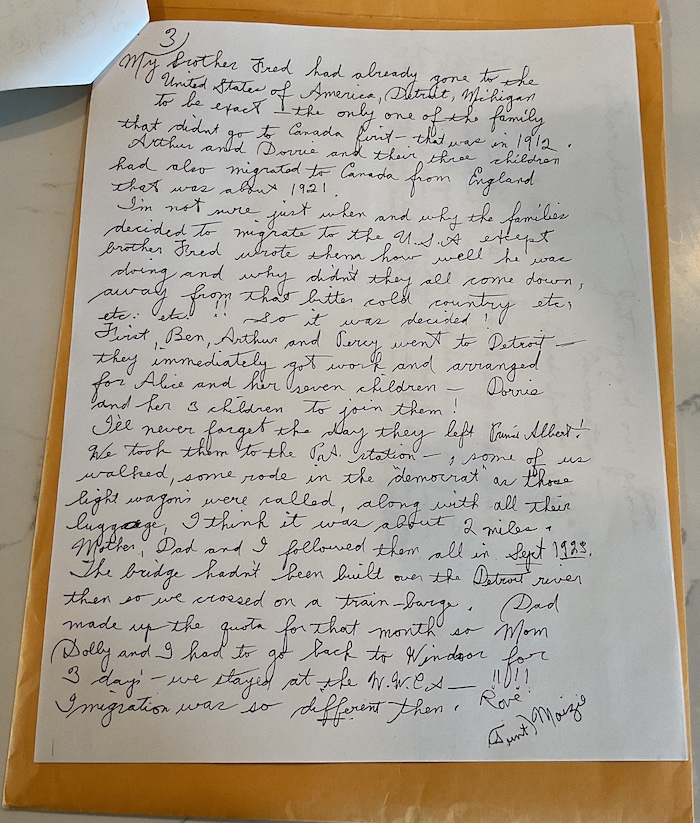 3
My brother Fred had already gone to the
United States of America, Detroit, Michigan
to be exact — the only one of the family
that didnt go to Canada first — that was in 1912.
Arthur and Dorrie and their three children
had also migrated to Canada from England
that was about 1921
I'm not sure just when and why the families
decided to migrate to the U.S.A except
brother Fred wrote them how well he was
doing and why didn't they all come down,
away from that bitter cold country etc,
etc: etc!! So it was decided!
First, Ben, Arthur and Percy went to Detroit —
they immediately got work and arranged
for Alice and her seven children — Dorrie
and her 3 children to join them!
I'll never forget the day they left Albert!
We took them to the station —, some of us
walked, some rode in the "democrat" as those
light wagons were called, along with all their
luggage, I think it was about 2 miles.
Mother, Dad and I followed them all in Sept 1923.
The bridge hadn't been built over the Detroit river
then so we crossed on a train-barge. (Dad
made up the quota for that month so Mom
Dolly and I had to go back to Windsor for
3 days — we stayed at the Y.W.C.A — !!!!!
Imigration was so different then. Love
(Aunt) Maizie